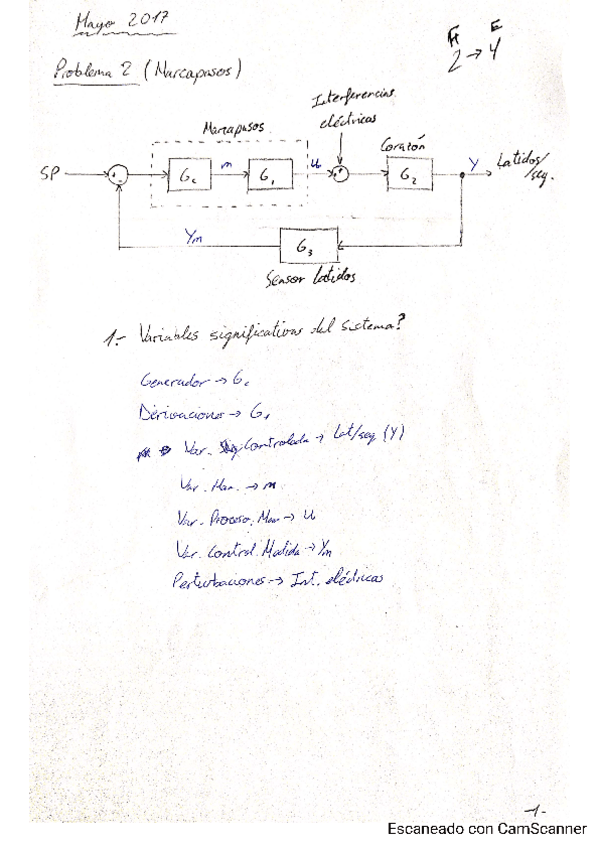 Mayo 2017
Problema 2 (Marcapasos)
H E
2 → 4
Interferencias
eléctricas
Marcapasos
Corazón
SP
Gc
m
G1
u
G2
Y
Latidos/
/seg.
Ym
G3
Sensor latidos
1.- Variables significativas del sistema?
Generador → Gc
Derivaciones → G1
Var. Controlada → Lat/seg (Y)
Var. Man. → m
Var. Proceso. Man → u
Var. Control. Medida → Ym
Perturbaciones → Int. eléctricas
-1-
Escaneado con CamScanner